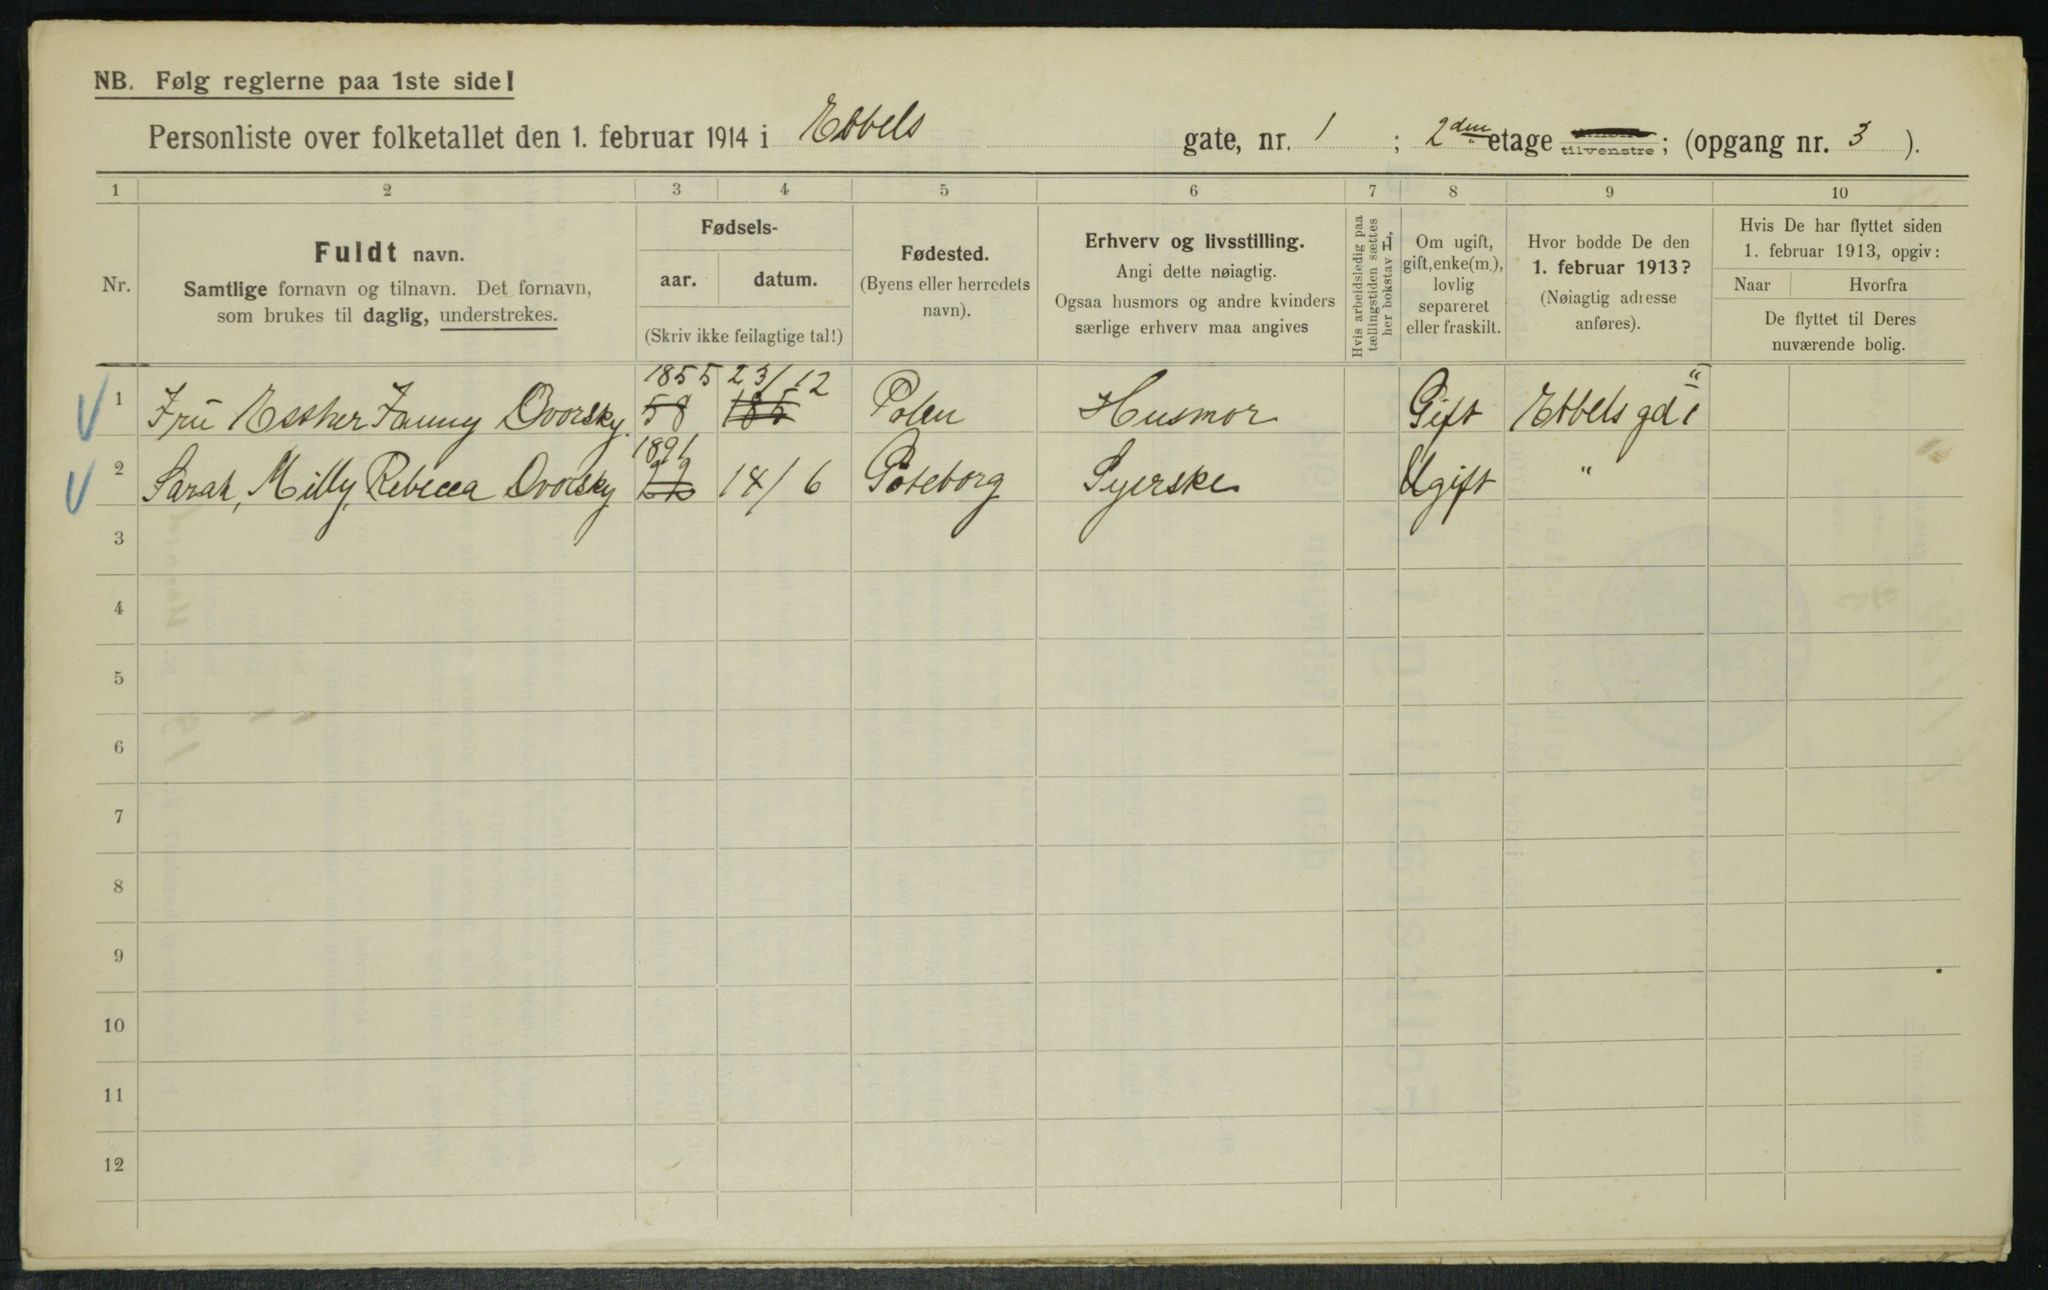 NB. Følg reglerne paa 1ste side!
Personliste over folketallet den 1. februar 1914 i Ebbels gate, nr. 1 ; 2den etage tilvenstre; (opgang nr. 3 ).
1 2 3 4 5 6 7 8 9 10
Nr.
Fuldt navn.
Samtlige fornavn og tilnavn. Det fornavn,
som brukes til daglig, understrekes.
Fødsels-
aar. datum.
(Skriv ikke feilagtige tal!)
Fødested.
(Byens eller herredets
navn).
Erhverv og livsstilling.
Angi dette nøiagtig.
Ogsaa husmors og andre kvinders
særlige erhverv maa angives
Hvis arbeidsledig paa
tællingstiden sættes
her bokstav L,
Om ugift,
gift, enke(m.),
lovlig
separeret
eller fraskilt.
Hvor bodde De den
1. februar 1913?
(Nøiagtig adresse
anføres).
Hvis De har flyttet siden
1. februar 1913, opgiv:
Naar Hvorfra
De flyttet til Deres
nuværende bolig.
1855 23/12
1 Fru Esther Fanny Dvorsky. 58 Polen Husmor Gift Ebbels gd 1
1891
2 Sarah, Milly, Rebecca Dvorsky 22 14/6 Göteborg Syerske Ugift "
3
4
5
6
7
8
9
10
11
12